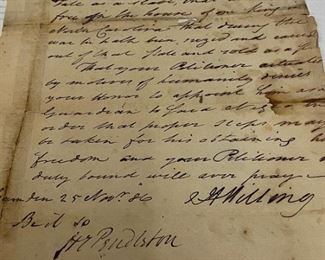 Sale as a Slave, that
free for the
North Carolina that during the
war he hath been seized and carried
out of that State and sold as a
That your Petitioner actuated
by motives of humanity desires
your Honor to appoint him as a
Guardian to said in
order that proper Steps may
be taken for his obtaining
freedom and your Petitioner
duty bound will ever pray
Camden 25 Novr. 86 Willing
Be it so
H Pendleton